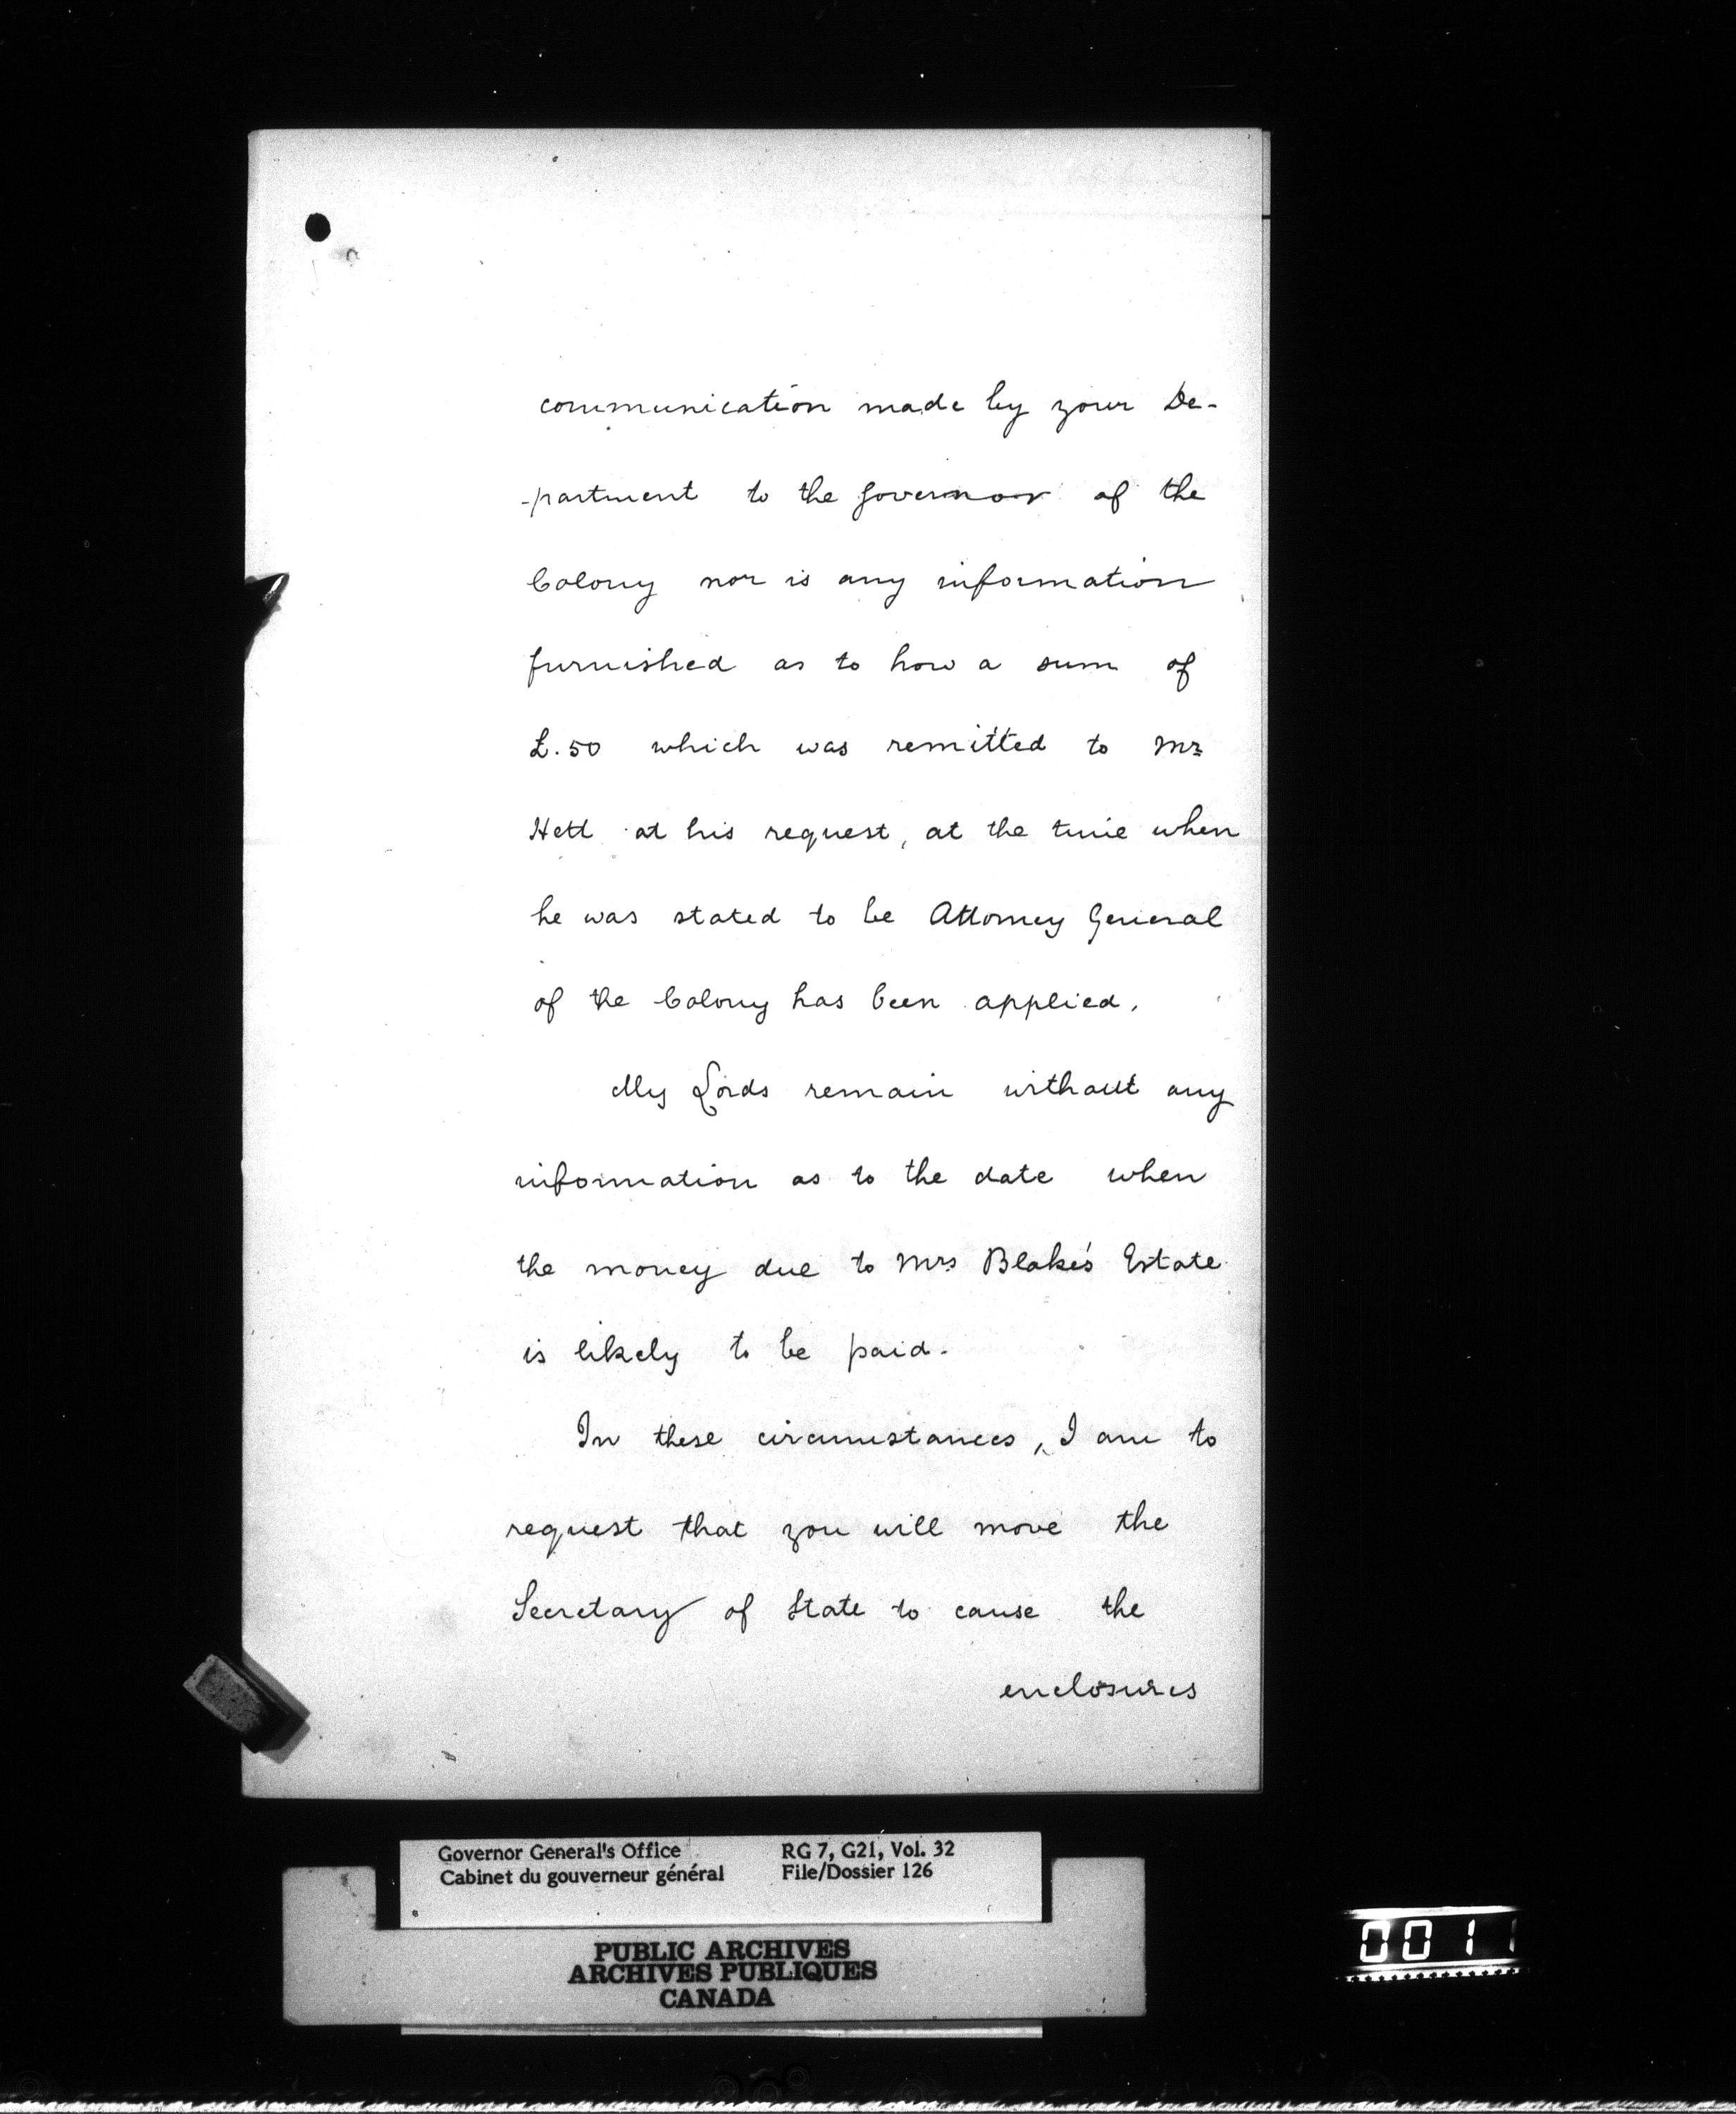 communication made by your De-
-partment to the Governor of the
Colony nor is any information
furnished as to how a sum of
£.50 which was remitted to Mr
Hett at his request, at the time when
he was stated to be Attorney General
of the Colony has been applied.
My Lords remain without any
information as to the date when
the money due to Mrs Blake's Estate
is likely to be paid.
In these circumstances, I am to
request that you will move the
Secretary of State to cause the
enclosures
Governor General's Office RG 7, G21, Vol. 32
Cabinet du gouverneur général File/Dossier 126
PUBLIC ARCHIVES
ARCHIVES PUBLIQUES
CANADA
0011